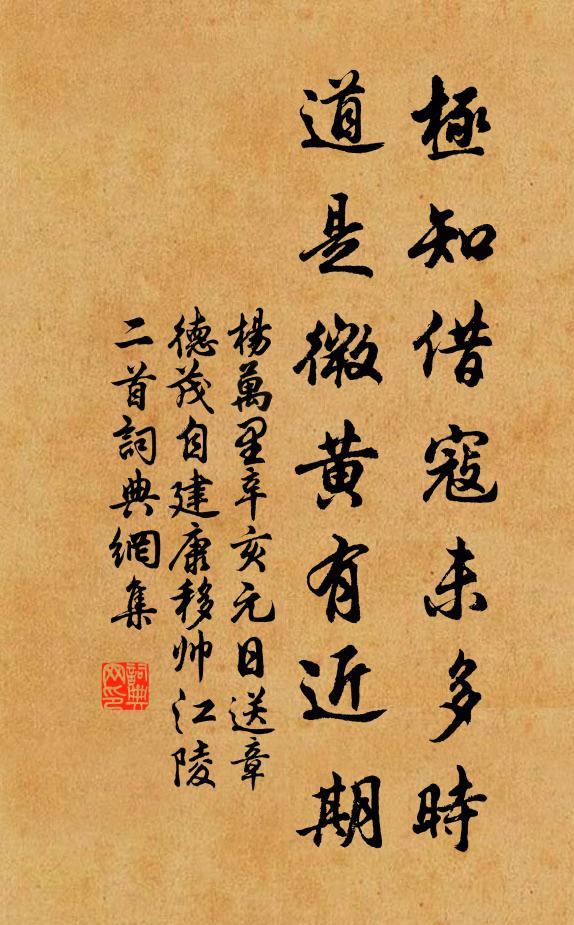 極知借寇未多時
道是徵黄有近期
楊萬里辛亥元日送章
德茂自建康移帅江陵
二首詞典網集
詞典網印